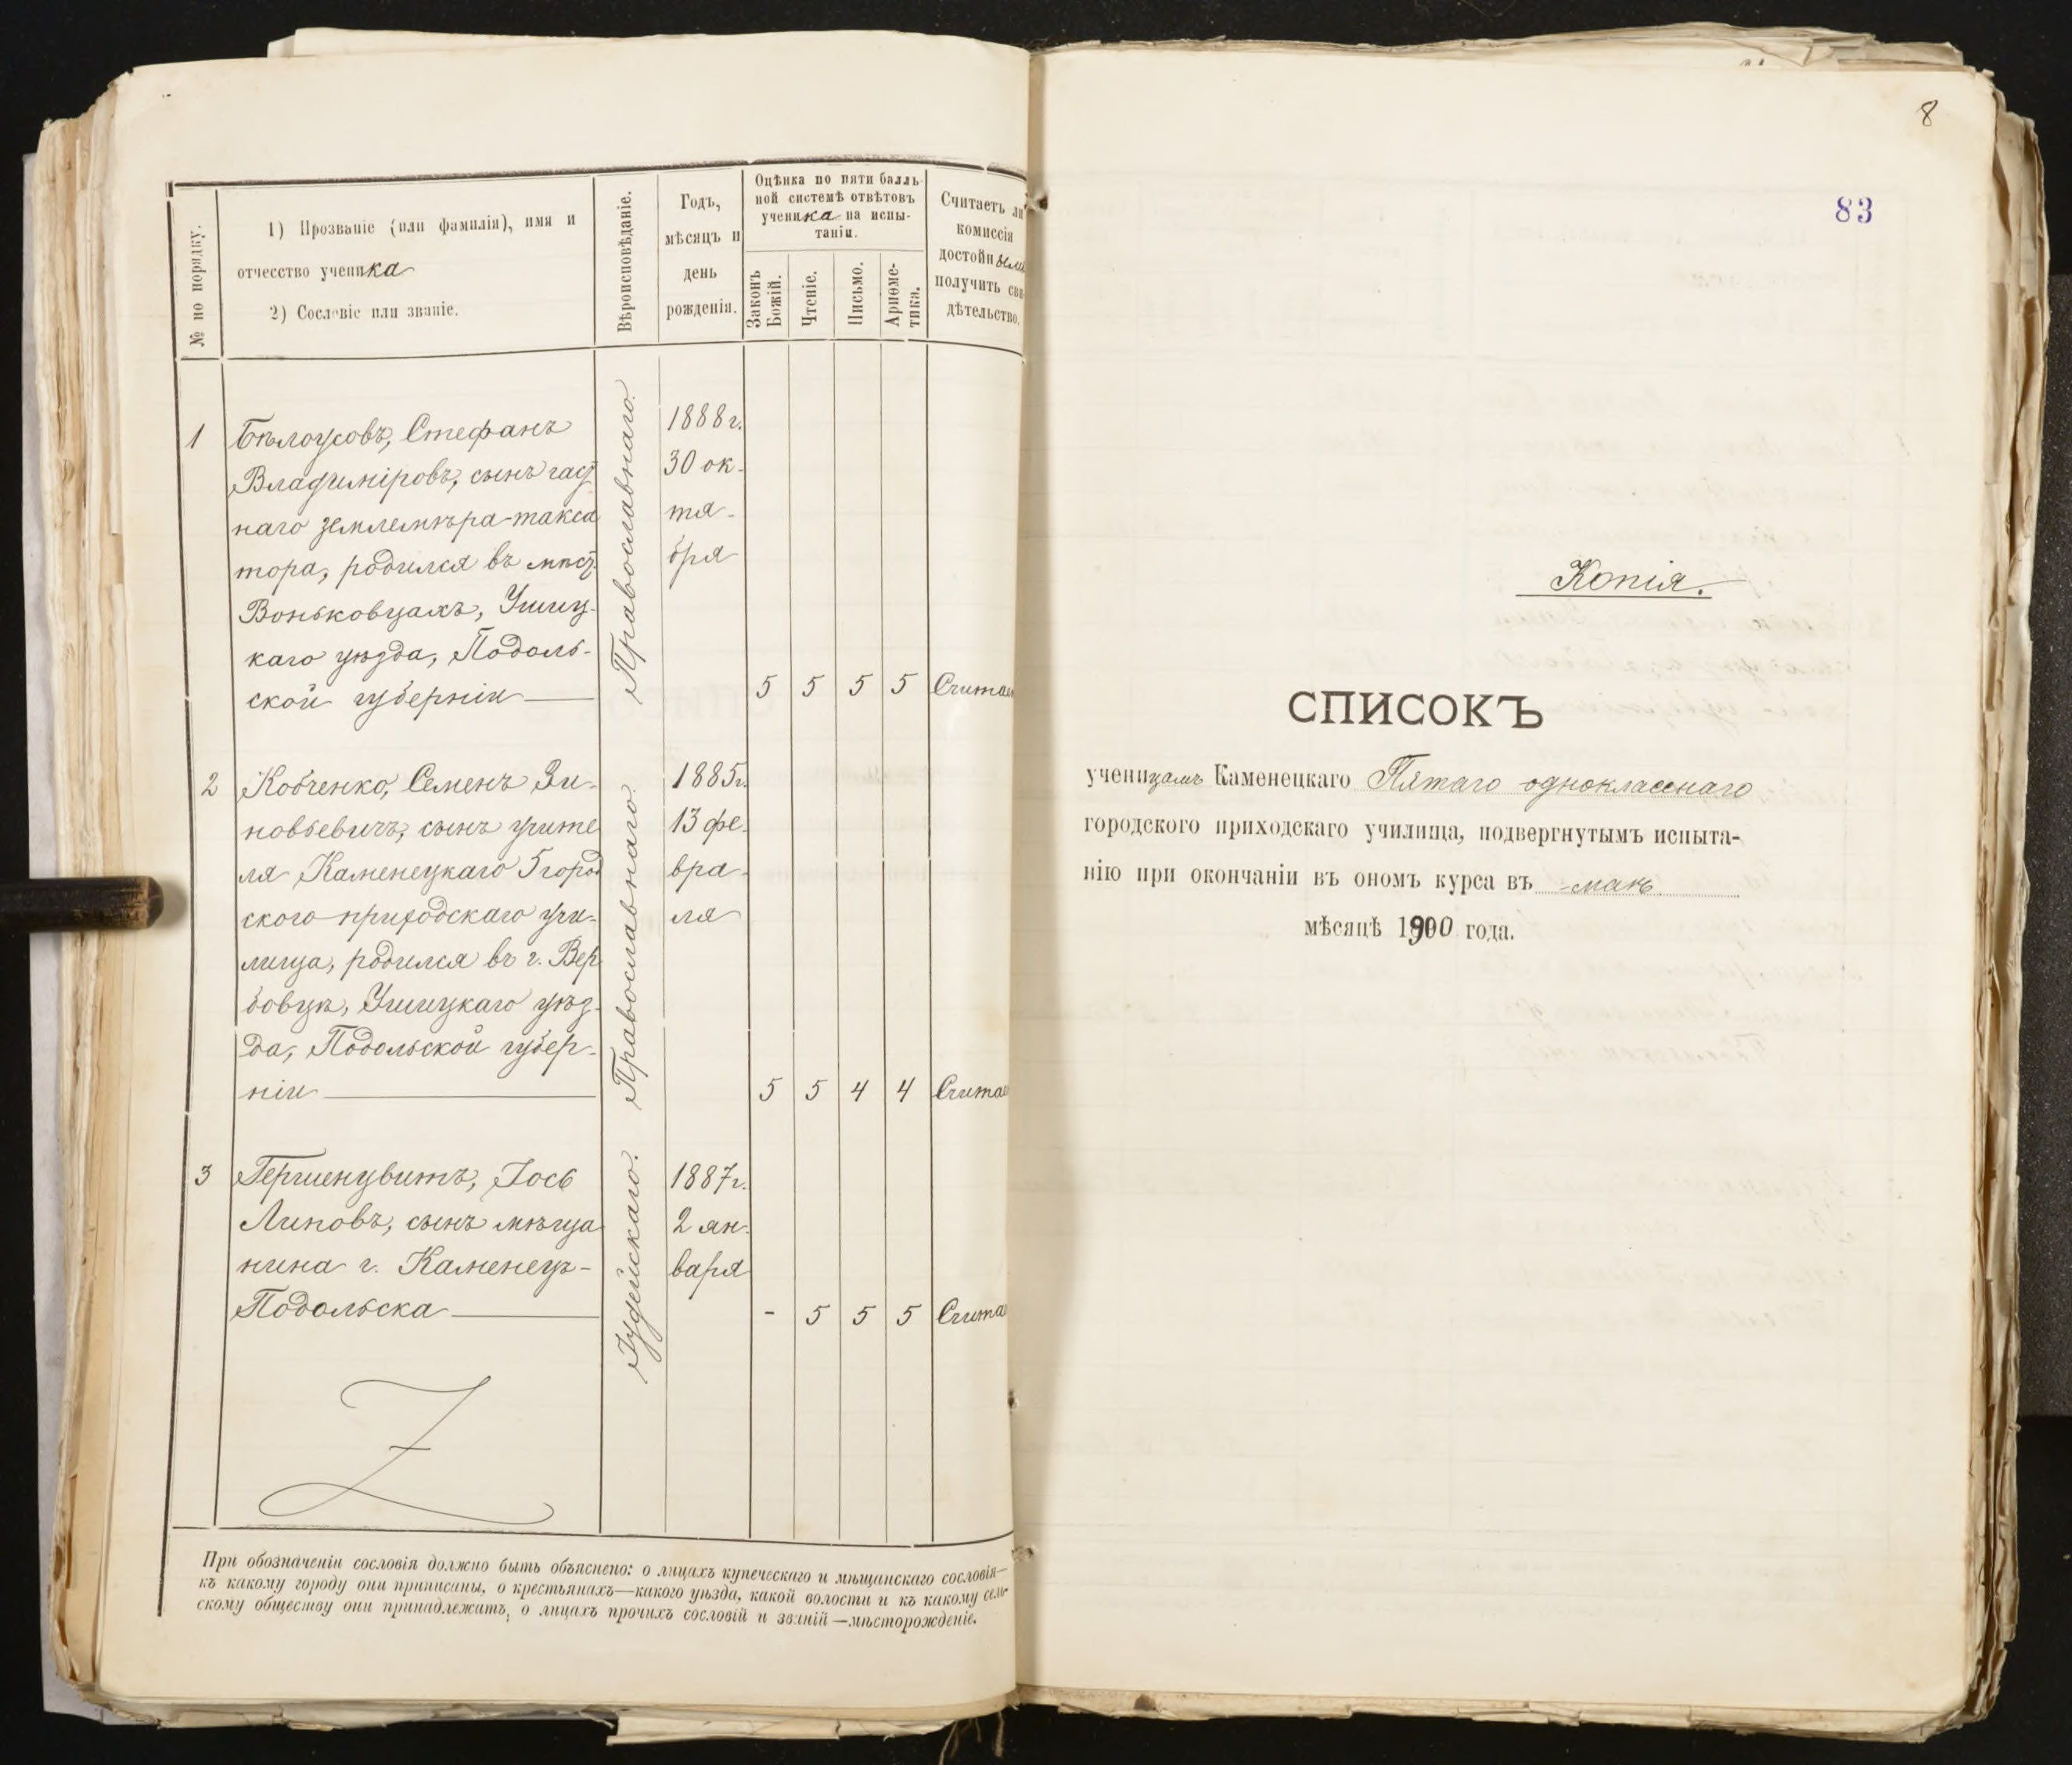 № по порядку.
1) Прозваніе (или фамилія), имя и
отчесство ученика
2) Сословіе или званіе.
Вѣроисповѣданіе.
Годъ,
мѣсяцъ и
день
рожденія.
Оцѣнка по пяти балль-
ной системѣ отвѣтовъ
ученика на испы-
таніи.
Законъ
Божій.
Чтеніе.
Письмо.
Ариѳме-
тика.
Считаетъ ли
комиссія
достойнымъ
получить сви-
дѣтельство.
1
Бѣлоусовъ, Стефанъ
Владиміровъ, сынъ част
наго землемѣра-такса
тора, родился въ мѣст.
Воньковцахъ, Ушиц-
каго уѣзда, Подоль-
ской губерніи
Православнаго.
1888г.
30 ок-
тя-
бря
5 5 5 5 Считает
2
Кобченко, Семенъ Зи-
новьевичъ, сынъ учите
ля Каменецкаго 5 город
ского приходскаго учи-
лища, родился въ г. Вер
бовцѣ, Ушицкаго уѣз-
да, Подольской губер-
ніи
Православнаго.
1885г.
13 фе-
вра-
ля
5 5 4 4 Считае
3
Гершенцвитъ, Іось
Липовъ, сынъ мѣща
нина г. Каменец-
Подольска
Іудейскаго.
1887г.
2 ян-
варя
- 5 5 5 Счита
При обозначеніи сословія должно быть объяснено: о лицахъ купеческаго и мѣщанскаго сословія—
къ какому городу они приписаны, о крестьянахъ—какого уѣзда, какой волости и къ какому сель-
скому обществу они принадлежатъ, о лицахъ прочихъ сословій и званій—мѣсторожденіе.
8
83
Копія.
СПИСОКЪ
ученицамъ Каменецкаго Пятаго однокласснаго
городского приходскаго училища, подвергнутымъ испыта-
нію при окончаніи въ ономъ курса въ маѣ
мѣсяцѣ 1900 года.